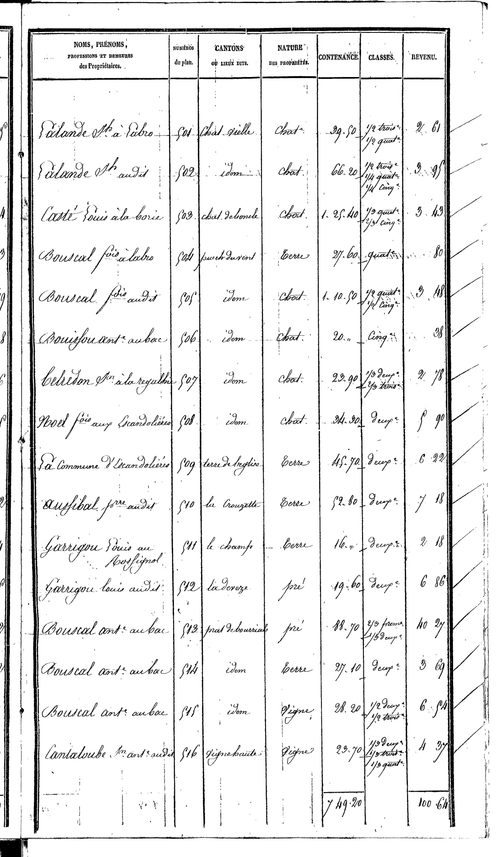 NOMS, PRÉNOMS, PROFESSIONS ET DEMEURES des Propriétaires. NUMÉRO du plan. CANTONS OU LIEUX DITS. NATURE DES PROPRIÉTÉS. CONTENANCE. CLASSES. REVENU.
Lalande à Labro 501 Chat. vieille Chat. 39.50 1/2 trois. 1/2 quat. 2 61
Lalande audit 502 idem Chat. 66.20 1/2 trois. 1/4 quat. 1/4 cinq. 3 95
Casté Louis à la borie 503 Chat. Chat. 1.25.40 1/3 quat. 2/3 cinq. 3 43
Bouscal fois à labro 504 Terre 27.60 quat. 80
Bouscal fois audit 505 idem Chat. 1.10.50 1/2 quat. 1/2 cinq. 3 48
Bouissou ant. au bac 506 idem Chat. 20.. cinq. 38
à la 507 idem Chat. 23.90 1/3 deux. 2/3 trois. 2 78
Noel fois aux Escandolières 508 idem Chat. 34.30 deux. 5 90
La Commune d'Escandolières 509 terre de l'église Terre 45.70 deux. 6 22
Aussibal pierre audit 510 la Crouzette Terre 52.80 deux. 7 18
Garrigou Louis au Rossignol 511 le champ Terre 16.. deux. 2 18
Garrigou louis audit 512 la devèze pré 19.60 deux. 6 86
Bouscal ant. au bac 513 prat de bourrials pré 88.70 2/3 prem. 1/3 deux. 40 27
Bouscal ant. au bac 514 idem Terre 27.10 deux. 3 69
Bouscal ant. au bac 515 idem Vigne 28.20 1/2 deux. 1/2 trois. 6 54
Cantaloube ant. audit 516 Vigne haute Vigne 23.70 1/3 deux. 1/3 trois. 1/3 quat. 4 37
7 49.20 100 64